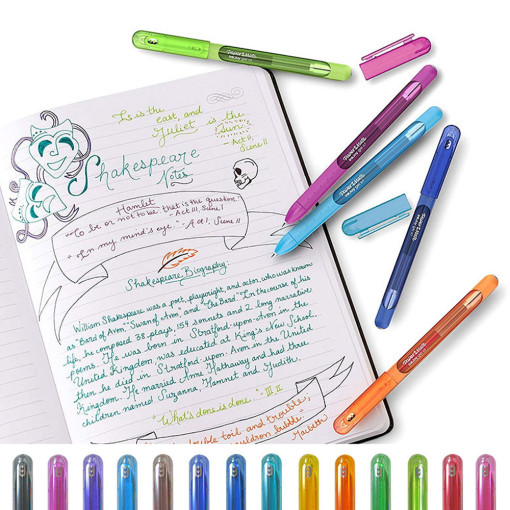 It is the
east, and
Juliet is the
Sun.
- Act II,
Scene II
Shakespeare
Notes
Hamlet
"To be or not to be, that is the question."
- Act III, Scene I
"In my mind's eye." - Act I, Scene II
Shakespeare Biography:
William Shakespeare was a poet, playwright, and actor, who was known
as "Bard of Avon," "Swan of Avon," and "the Bard." In the course of his
life, he composed 38 plays, 154 sonnets and 2 long narrative
poems. He was born in Stratford-upon-Avon in the
United Kingdom, was educated at King's New School,
then he died in Stratford-upon-Avon in the United
Kingdom. He married Anne Hathaway and had three
children named Suzanna, Hamnet and Judith.
"What's done is done." - III II
double toil and trouble,
cauldron bubble."
Macbeth
Paper Mate
Paper Mate
Paper Mate
Paper Mate
Paper Mate